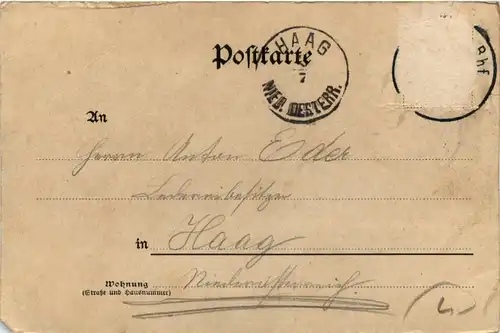 Postkarte
HAAG
7
NIED. OESTERR.
Bhf
An
Herrn Anton Eder
Ledereibesitzer
in Haag
Niederösterreich
Wohnung
(Straße und Hausnummer)